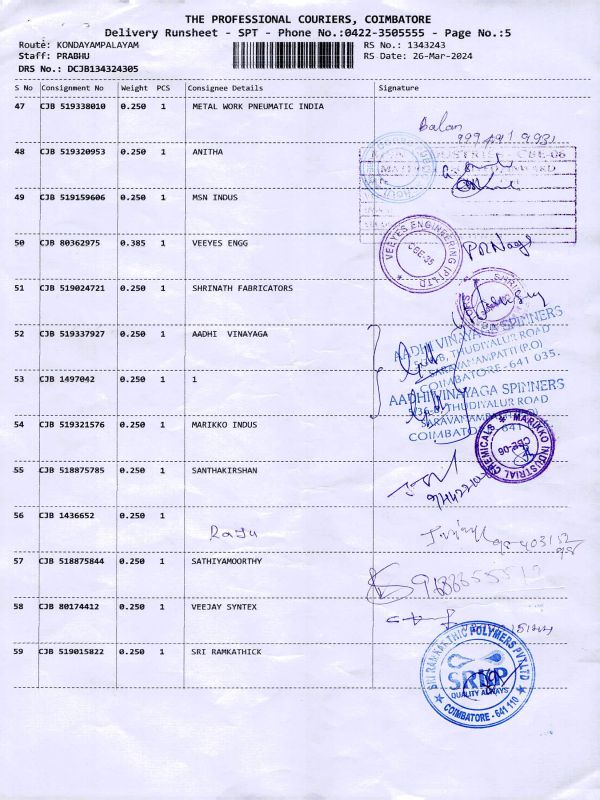 THE PROFESSIONAL COURIERS, COIMBATORE
Delivery Runsheet - SPT - Phone No.:0422-3505555 - Page No.:5
Route: KONDAYAMPALAYAM
RS No.: 1343243
Staff: PRABHU
RS Date: 26-Mar-2024
DRS No.: DCJB134324305
S No Consignment No Weight PCS Consignee Details Signature
47 CJB 519338010 0.250 1 METAL WORK PNEUMATIC INDIA
Balan
48 CJB 519320953 0.250 1 ANITHA
CBE-06
49 CJB 519159606 0.250 1 MSN INDUS
50 CJB 80362975 0.385 1 VEEYES ENGG
VEEYES ENGINEERING (P) LTD
CBE-35
51 CJB 519024721 0.250 1 SHRINATH FABRICATORS
52 CJB 519337927 0.250 1 AADHI VINAYAGA
AADHI VINAYAGA SPINNERS
THUDIYALUR ROAD
SARAVANAMPATTI (P.O)
COIMBATORE-641 035.
53 CJB 1497042 0.250 1 i
AADHI VINAYAGA SPINNERS
THUDIYALUR ROAD
54 CJB 519321576 0.250 1 MARIKKO INDUS
MARUKKO INDUSTRIAL CHEMICALS
CBE-06
55 CJB 518875785 0.250 1 SANTHAKIRSHAN
56 CJB 1436652 0.250 1
Raju
57 CJB 518875844 0.250 1 SATHIYAMOORTHY
58 CJB 80174412 0.250 1 VEEJAY SYNTEX
59 CJB 519015822 0.250 1 SRI RAMKATHICK
SRI RAM KARTHIC POLYMERS PVT LTD
SRKP
QUALITY ALWAYS
COIMBATORE - 641 110